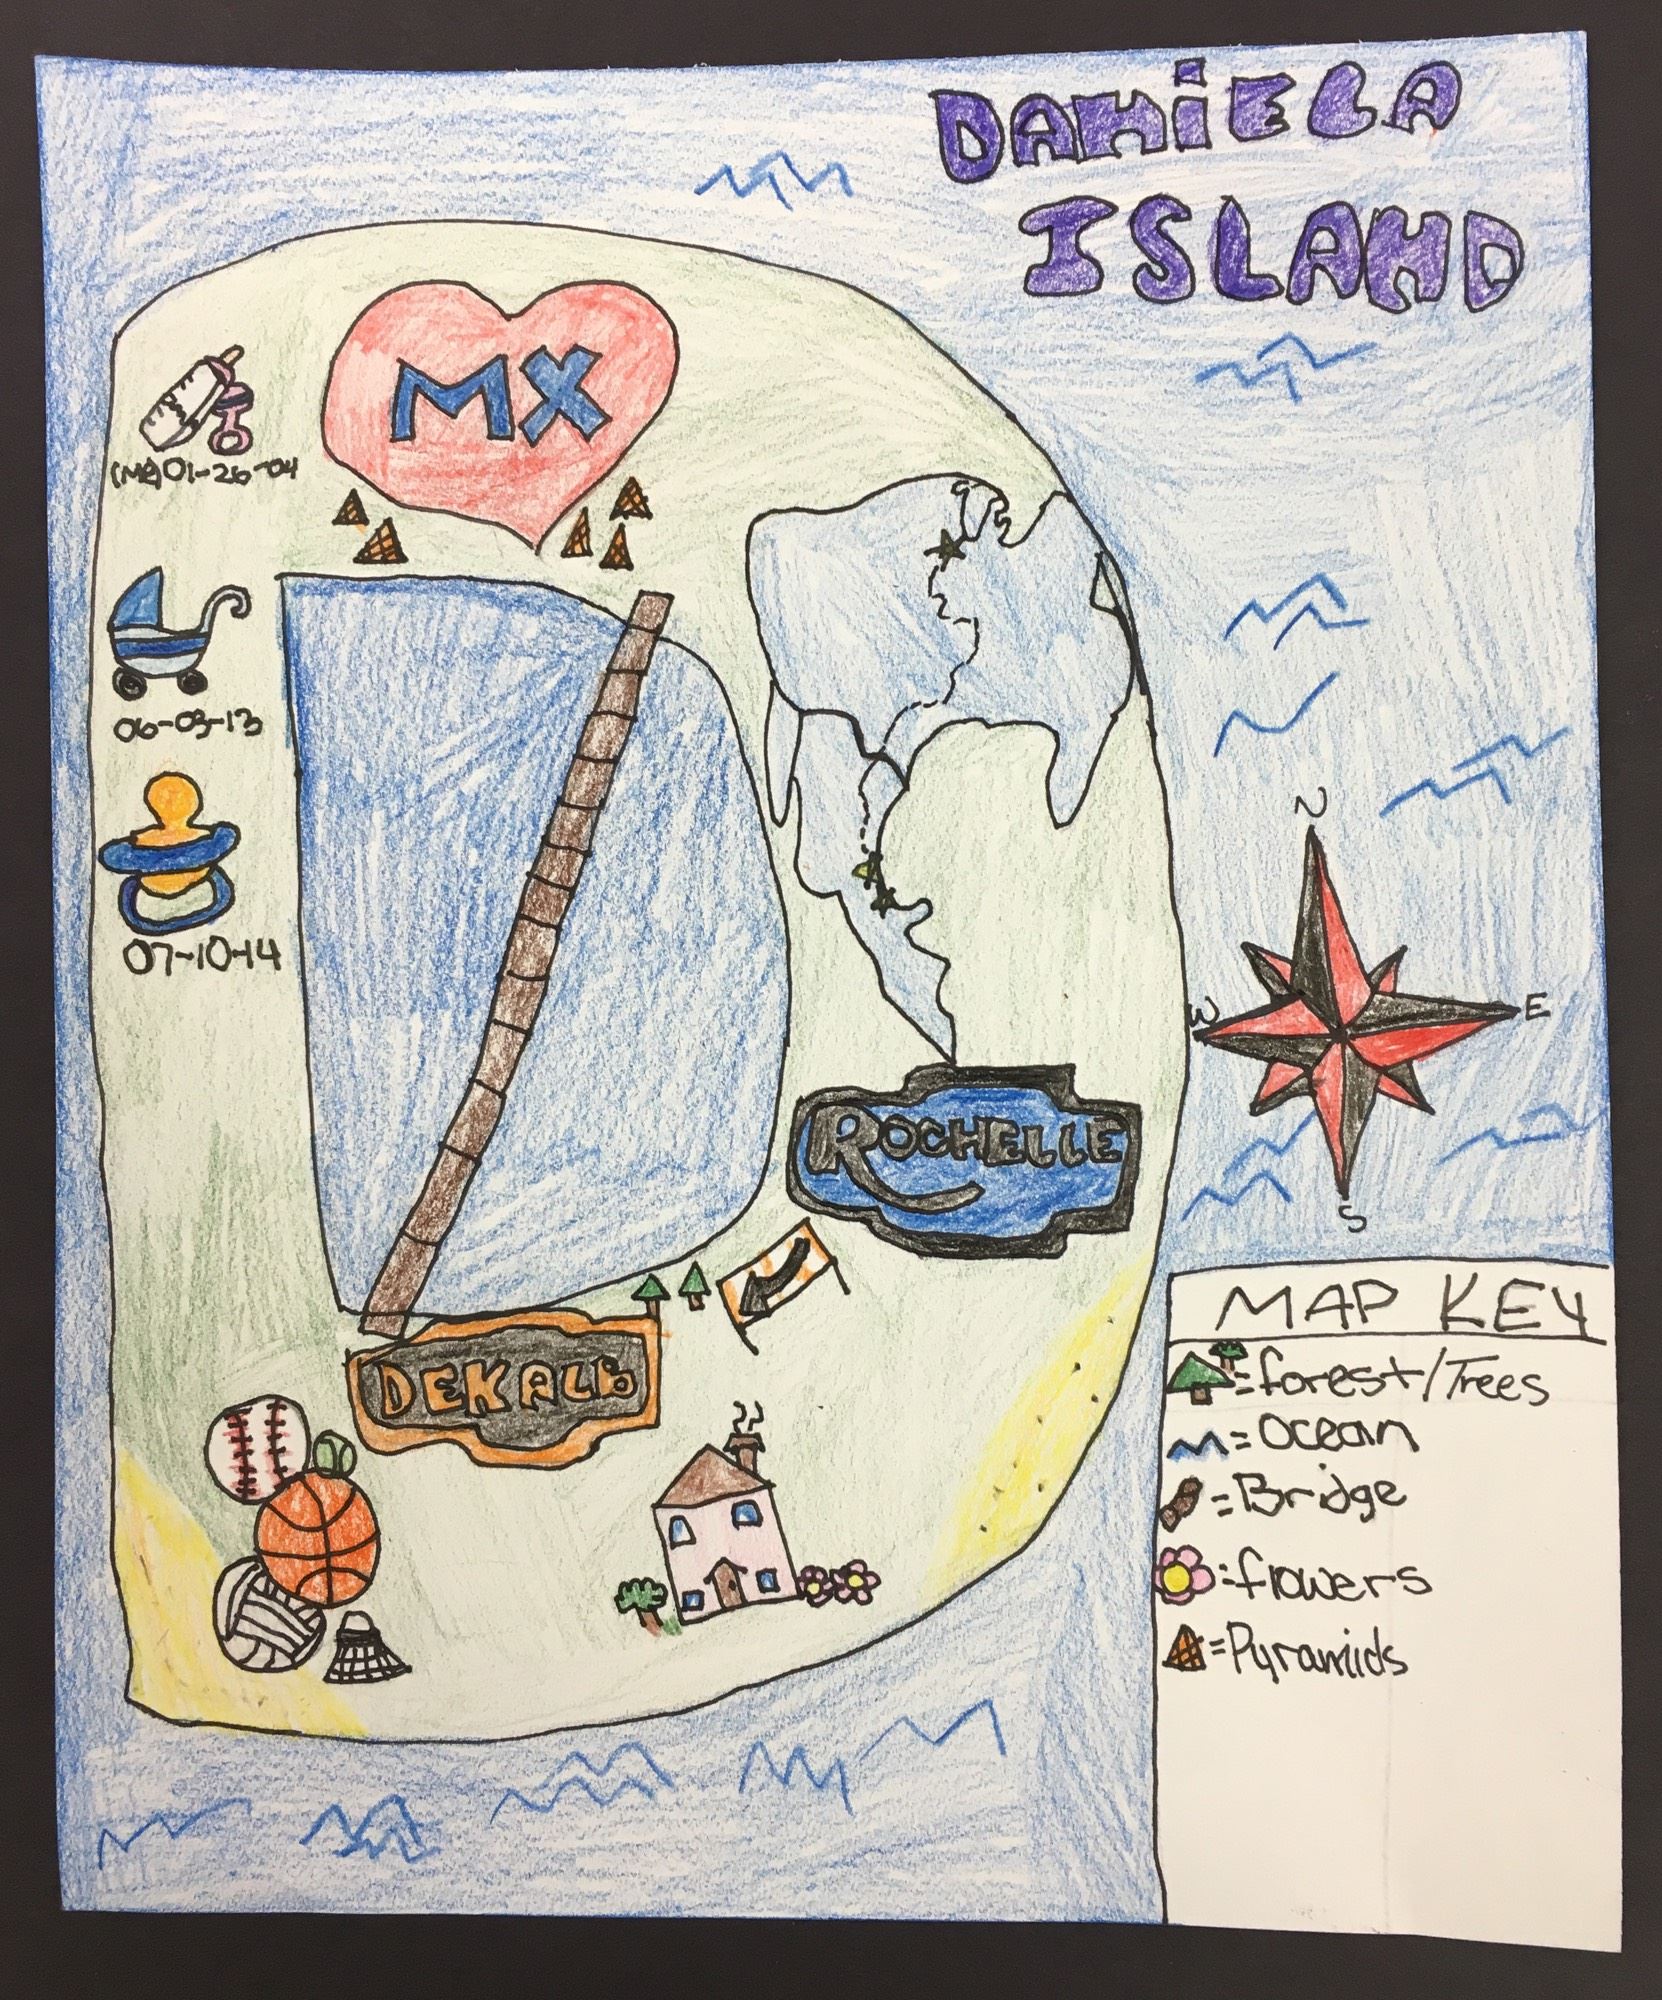 DANIELA
ISLAND
MX
(ME) 01-26-04
06-03-13
07-10-14
N
W
E
S
ROCHELLE
DEKALb
MAP KEY
=forest/Trees
=Ocean
=Bridge
=flowers
=Pyramids